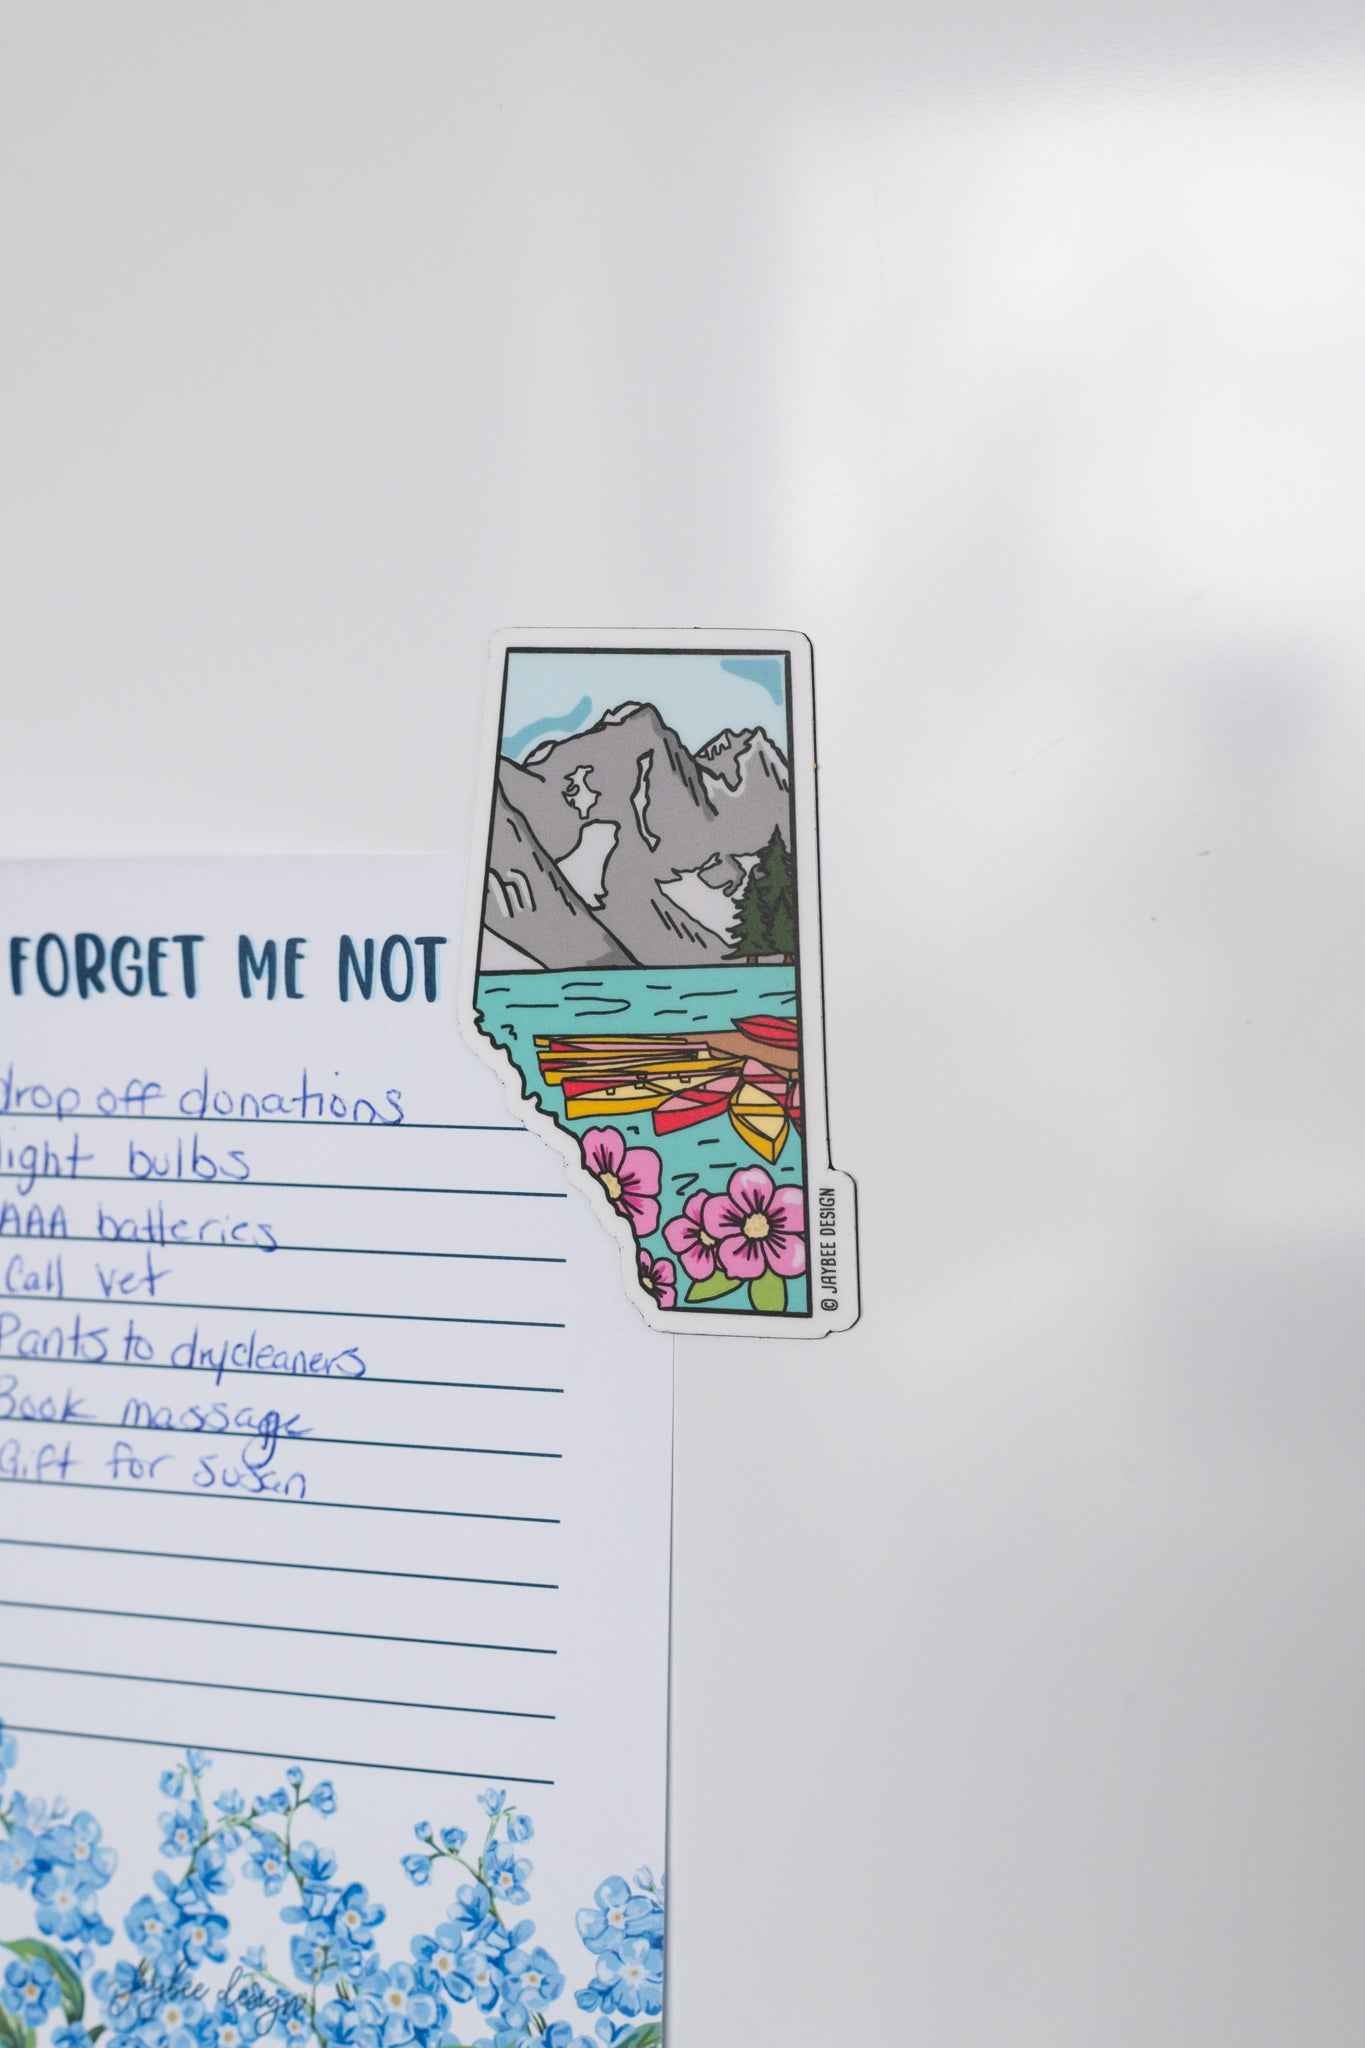 FORGET ME NOT
drop off donations
light bulbs
AAA batteries
Call vet
Pants to drycleaners
Book massage
Gift for susan
© JAYBEE DESIGN
jaybee design